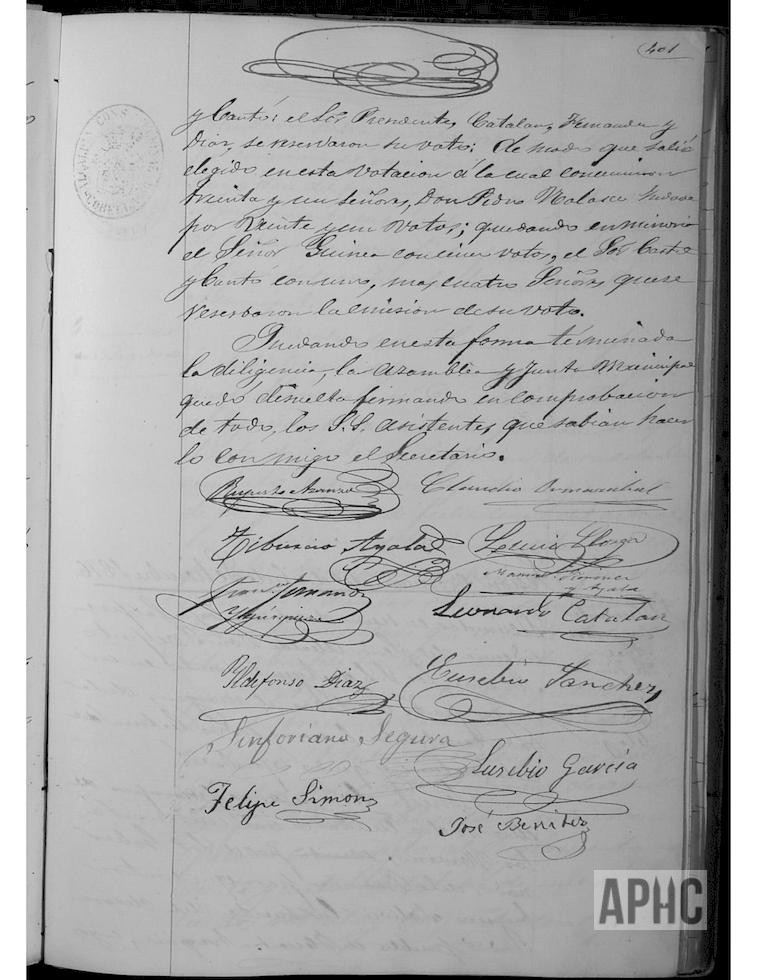 401
y Cantó: el Sor. Presidente, Catalan, Fernandez y
Diaz, se reservaron su voto; de modo que salió
elegido en esta votacion á la cual concurrieron
treinta y un señores, Don Pedro Nolasco
por veinte y un votos; quedando en minoria
el Señor Guinea con cinco votos, el Sor. Castº
y Cantó con uno, mas cuatro Señores que se
reservaron la emision de su voto.
Quedando en esta forma terminada
la diligencia, la asamblea y Junta Municipal
quedó disuelta firmando en comprobacion
de todo, los S.S. asistentes que sabian hacer
lo con migo el Secretario.
Ruperto Claudio
Tiburcio Ayala Llonga
Manuel
Fernandez Leonardo Catalan
Yldefonso Diaz Eusebio Sanchez
Sinforiano Segura
Eusebio Garcia
Felipe Simon
José Benitez
APHC